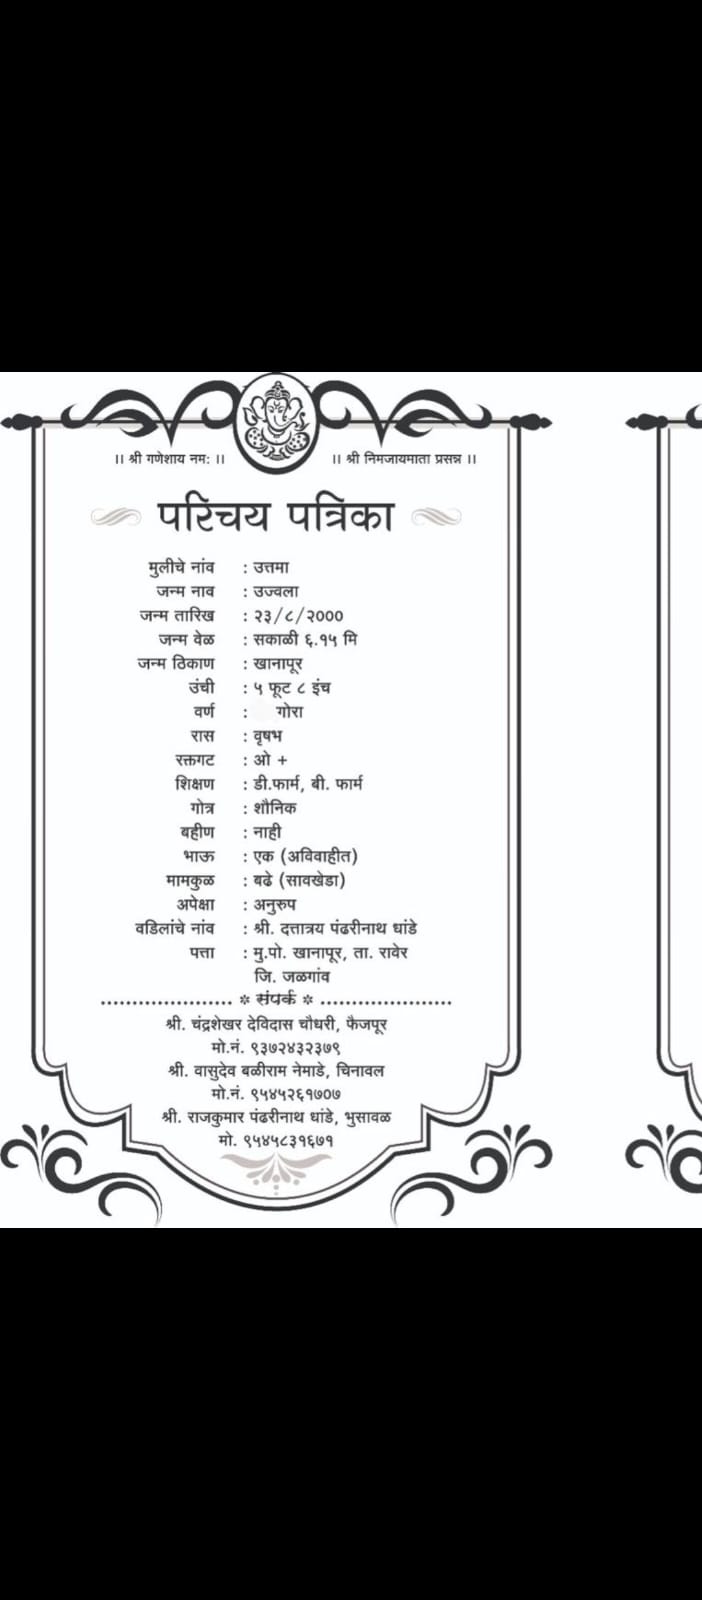 ।। श्री गणेशाय नम: ।। ।। श्री निमजायमाता प्रसन्न ।।
परिचय पत्रिका
मुलीचे नांव : उत्तमा
जन्म नाव : उज्वला
जन्म तारिख : २३/८/२०००
जन्म वेळ : सकाळी ६.१५ मि
जन्म ठिकाण : खानापूर
उंची : ५ फूट ८ इंच
वर्ण : गोरा
रास : वृषभ
रक्तगट : ओ +
शिक्षण : डी.फार्म, बी. फार्म
गोत्र : शौनिक
बहीण : नाही
भाऊ : एक (अविवाहीत)
मामकुळ : बढे (सावखेडा)
अपेक्षा : अनुरुप
वडिलांचे नांव : श्री. दत्तात्रय पंढरीनाथ धांडे
पत्ता : मु.पो. खानापूर, ता. रावेर
जि. जळगांव
..................... * संपर्क * .....................
श्री. चंद्रशेखर देविदास चौधरी, फैजपूर
मो.नं. ९३७२४३२३७९
श्री. वासुदेव बळीराम नेमाडे, चिनावल
मो.नं. ९५४५२६१७०७
श्री. राजकुमार पंढरीनाथ धांडे, भुसावळ
मो. ९५४५८३१६७१